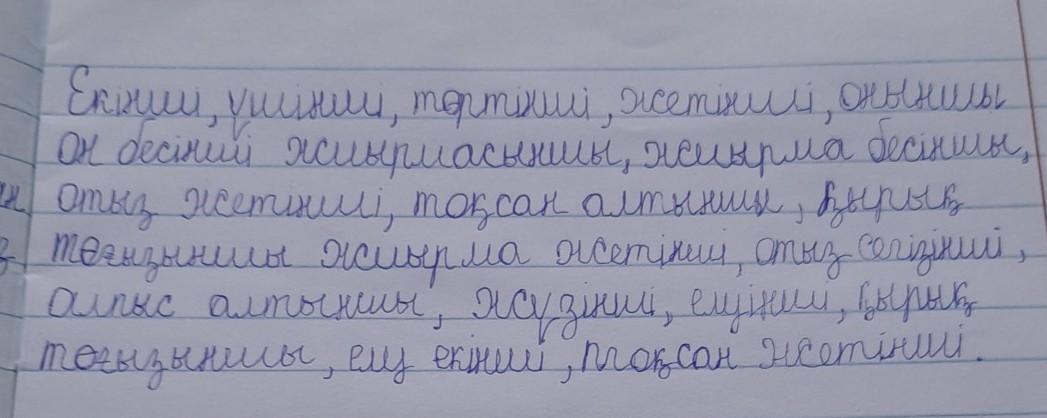 Екінші, үшінші, төртінші, жетінші, оныншы
он бесінші жиырмасыншы, жиырма бесіншы,
отыз жетінші, тоқсан алтыншы, қырық
тоғызыншы жиырма жетінші, отыз сегізінші,
алпыс алтыншы, жүзінші, елуінші, қырық
тоғызыншы, елу екінші, тоқсан жетінші.